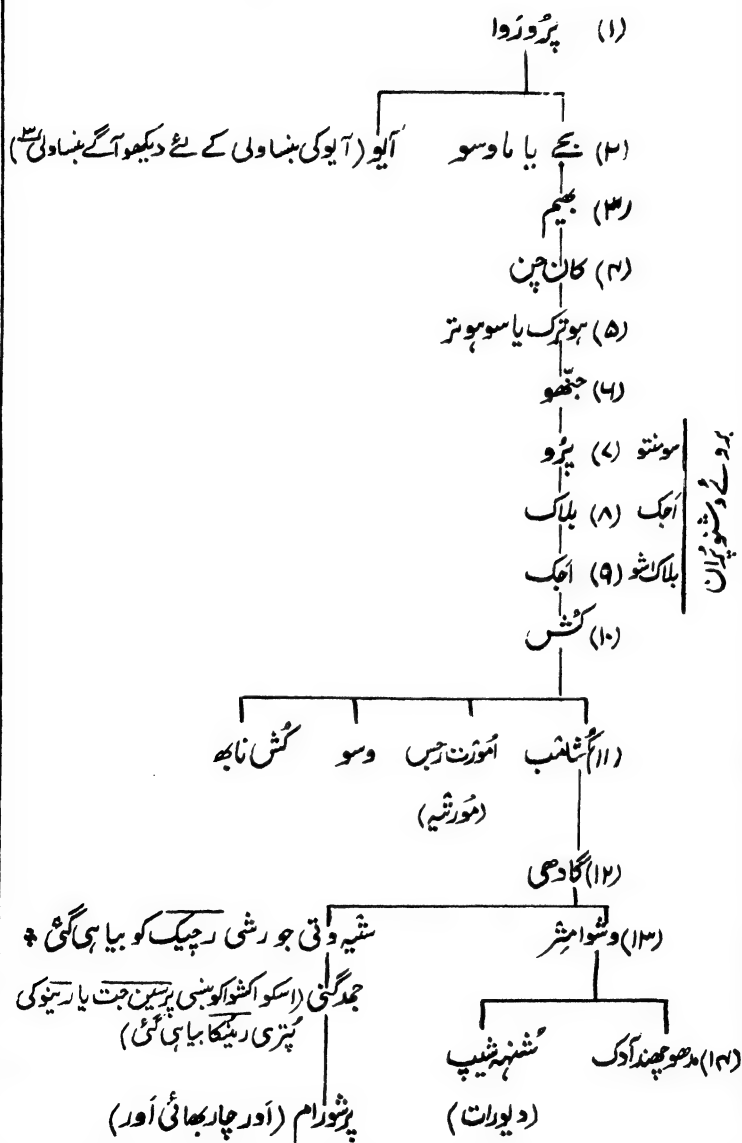 (۱) پرُورَوا
(۲) بجے یا ماوسو آیُو (آیو کی بنساولی کے لئے دیکھو آگے بنساولی ۳)
(۳) بھیم
(۴) کان چن
(۵) ہوترک یا سوہوتر
(۶) جنّھو
سومنتو (۷) پرُو
اَجک (۸) بلاک
بلاک اشو (۹) اَجک
بروئے وشنو پُران
(۱۰) کُش
(۱۱) کُشامب اموُرت رجس وسو کُش نابھ
(مُورتیہ)
(۱۲) گادھی
(۱۳) وشوامتر ستیہ وتی جو رشی رچیک کو بیاہی گئی *
جمدگنی (اسکو اکشواکو بنسی پرسین جت یا رینو کی
پُتری رینکا بیاہی گئی)
(۱۴) مدھو چھند آدک شُنہہ شیپ
(دیورات)
پرشورام (اَور چار بھائی اَور)